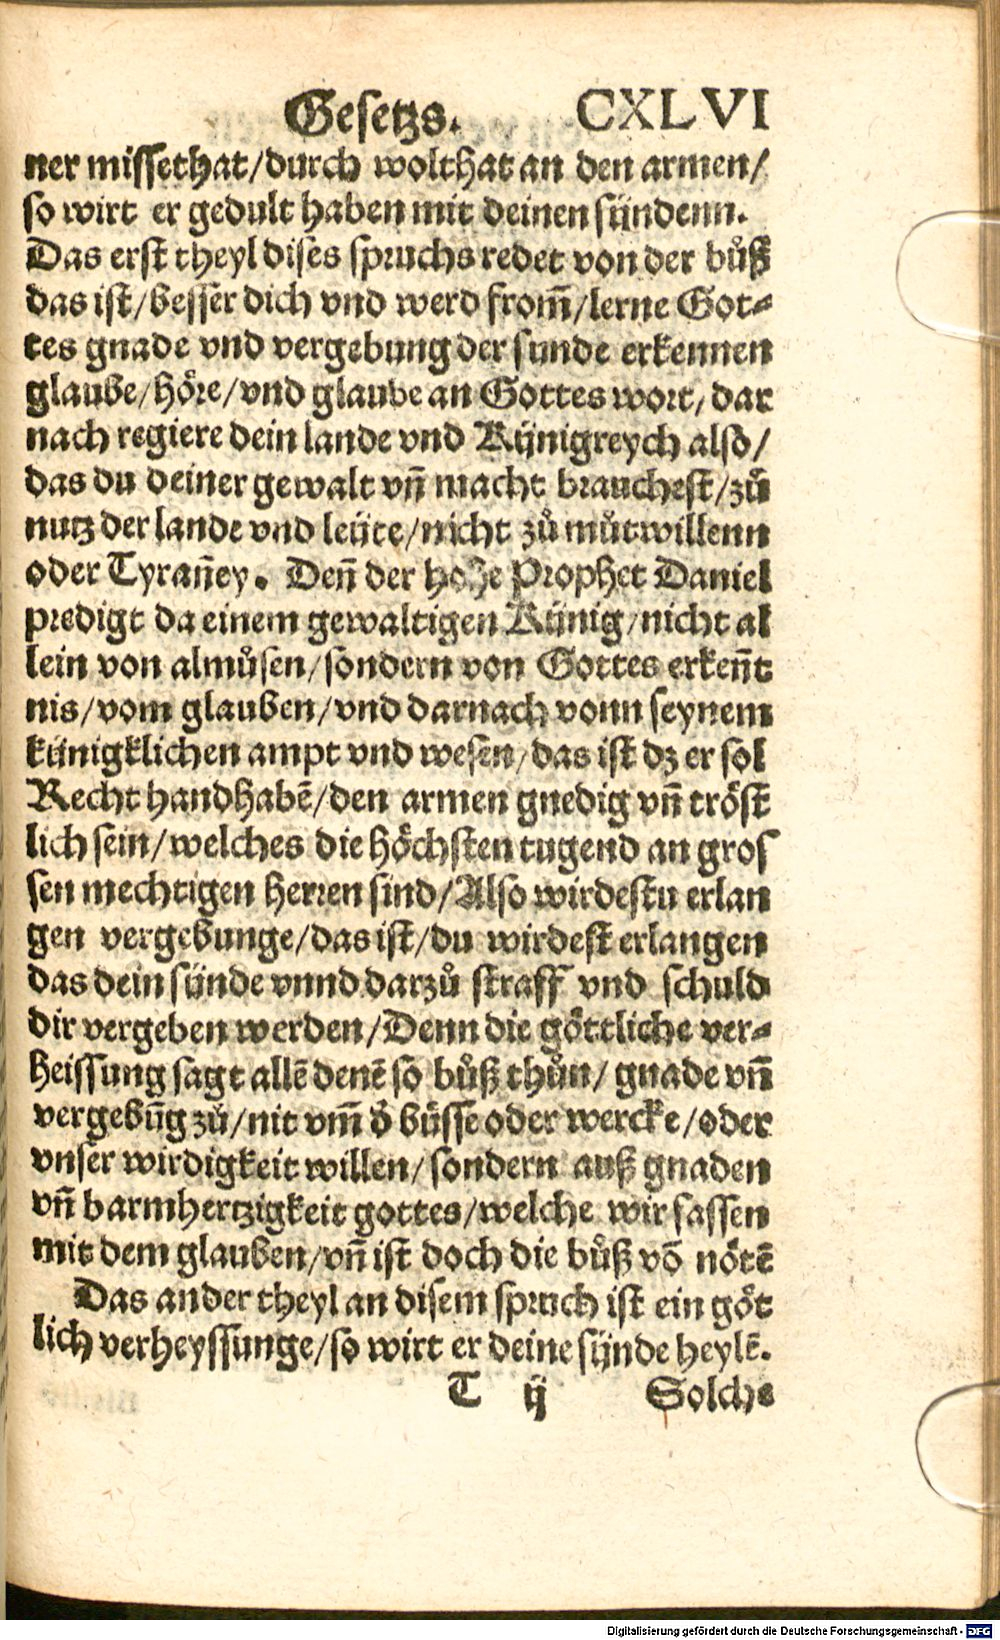 Gesetzs. CXLVI
ner missethat/durch wolthat an den armen/
so wirt er gedult haben mit deinen sündenn.
Das erst theyl dises spruchs redet von der bůß
das ist/besser dich vnd werd from̄/lerne Got-
tes gnade vnd vergebung der sunde erkennen
glaube/höre/vnd glaube an Gottes wort, dar
nach regiere dein lande vnd Künigreych also/
das du deiner gewalt vn̄ macht brauchest/zů
nutz der lande vnd leüte/nicht zů můtwillenn
oder Tyran̄ey. Den̄ der Prophet Daniel
predigt da einem gewaltigen Künig/nicht al
lein von almůsen/sondern von Gottes erken̄t
nis/vom glauben/vnd darnach vonn seynem
künigklichen ampt vnd wesen/das ist dz er sol
Recht handhabē/den armen gnedig vn̄ tröst
lich sein/welches die höchsten tugend an gros
sen mechtigen herren sind/Also wirdestu erlan
gen vergebunge/das ist/du wirdest erlangen
das dein sünde vnnd darzů straff vnd schuld
dir vergeben werden/Denn die göttliche ver-
heissung sagt allē denē so bůß thůn/gnade vn̄
vergebūg zů/nit vm̄ ð bůsse oder wercke/oder
vnser wirdigkeit willen/sondern auß gnaden
vn̄ barmhertzigkeit gottes/welche wir fassen
mit dem glauben/vn̄ ist doch die bůß vō nötē
Das ander theyl an disem spruch ist ein göt
lich verheyssunge/so wirt er deine sünde heylē.
T ij Solche
Digitalisierung gefördert durch die Deutsche Forschungsgemeinschaft - DFG